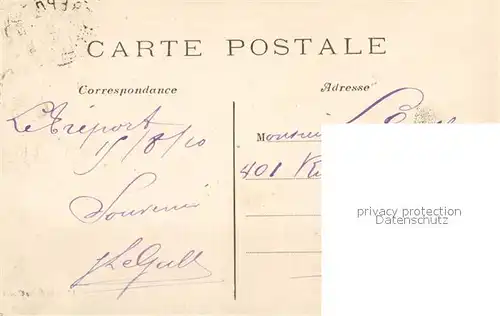 CARTE POSTALE
Correspondance
Adresse
Le Tréport
15/8/10
Souvenir
JLeGall
Monsieu
401
privacy protection
Datenschutz